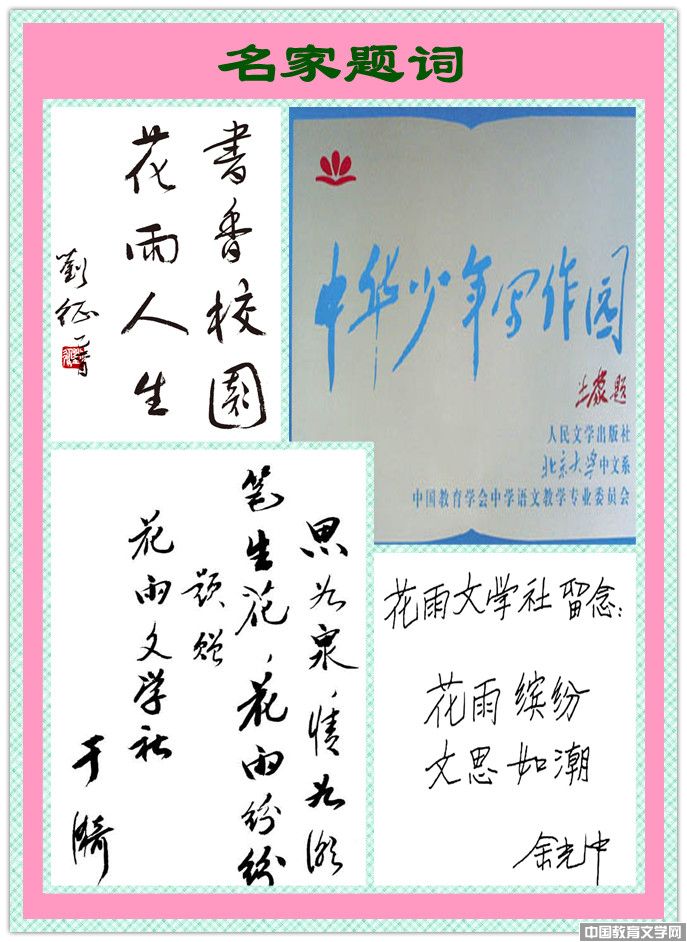 名家题词
書香校園
花雨人生
劉征
中华少年写作园
题
人民文学出版社
北京大学中文系
中国教育学会中学语文教学专业委员会
思如泉,情如潮
笔生花,花雨纷纷
题赠
花雨文学社
于漪
花雨文学社留念:
花雨缤纷
文思如潮
余光中
中国教育文学网